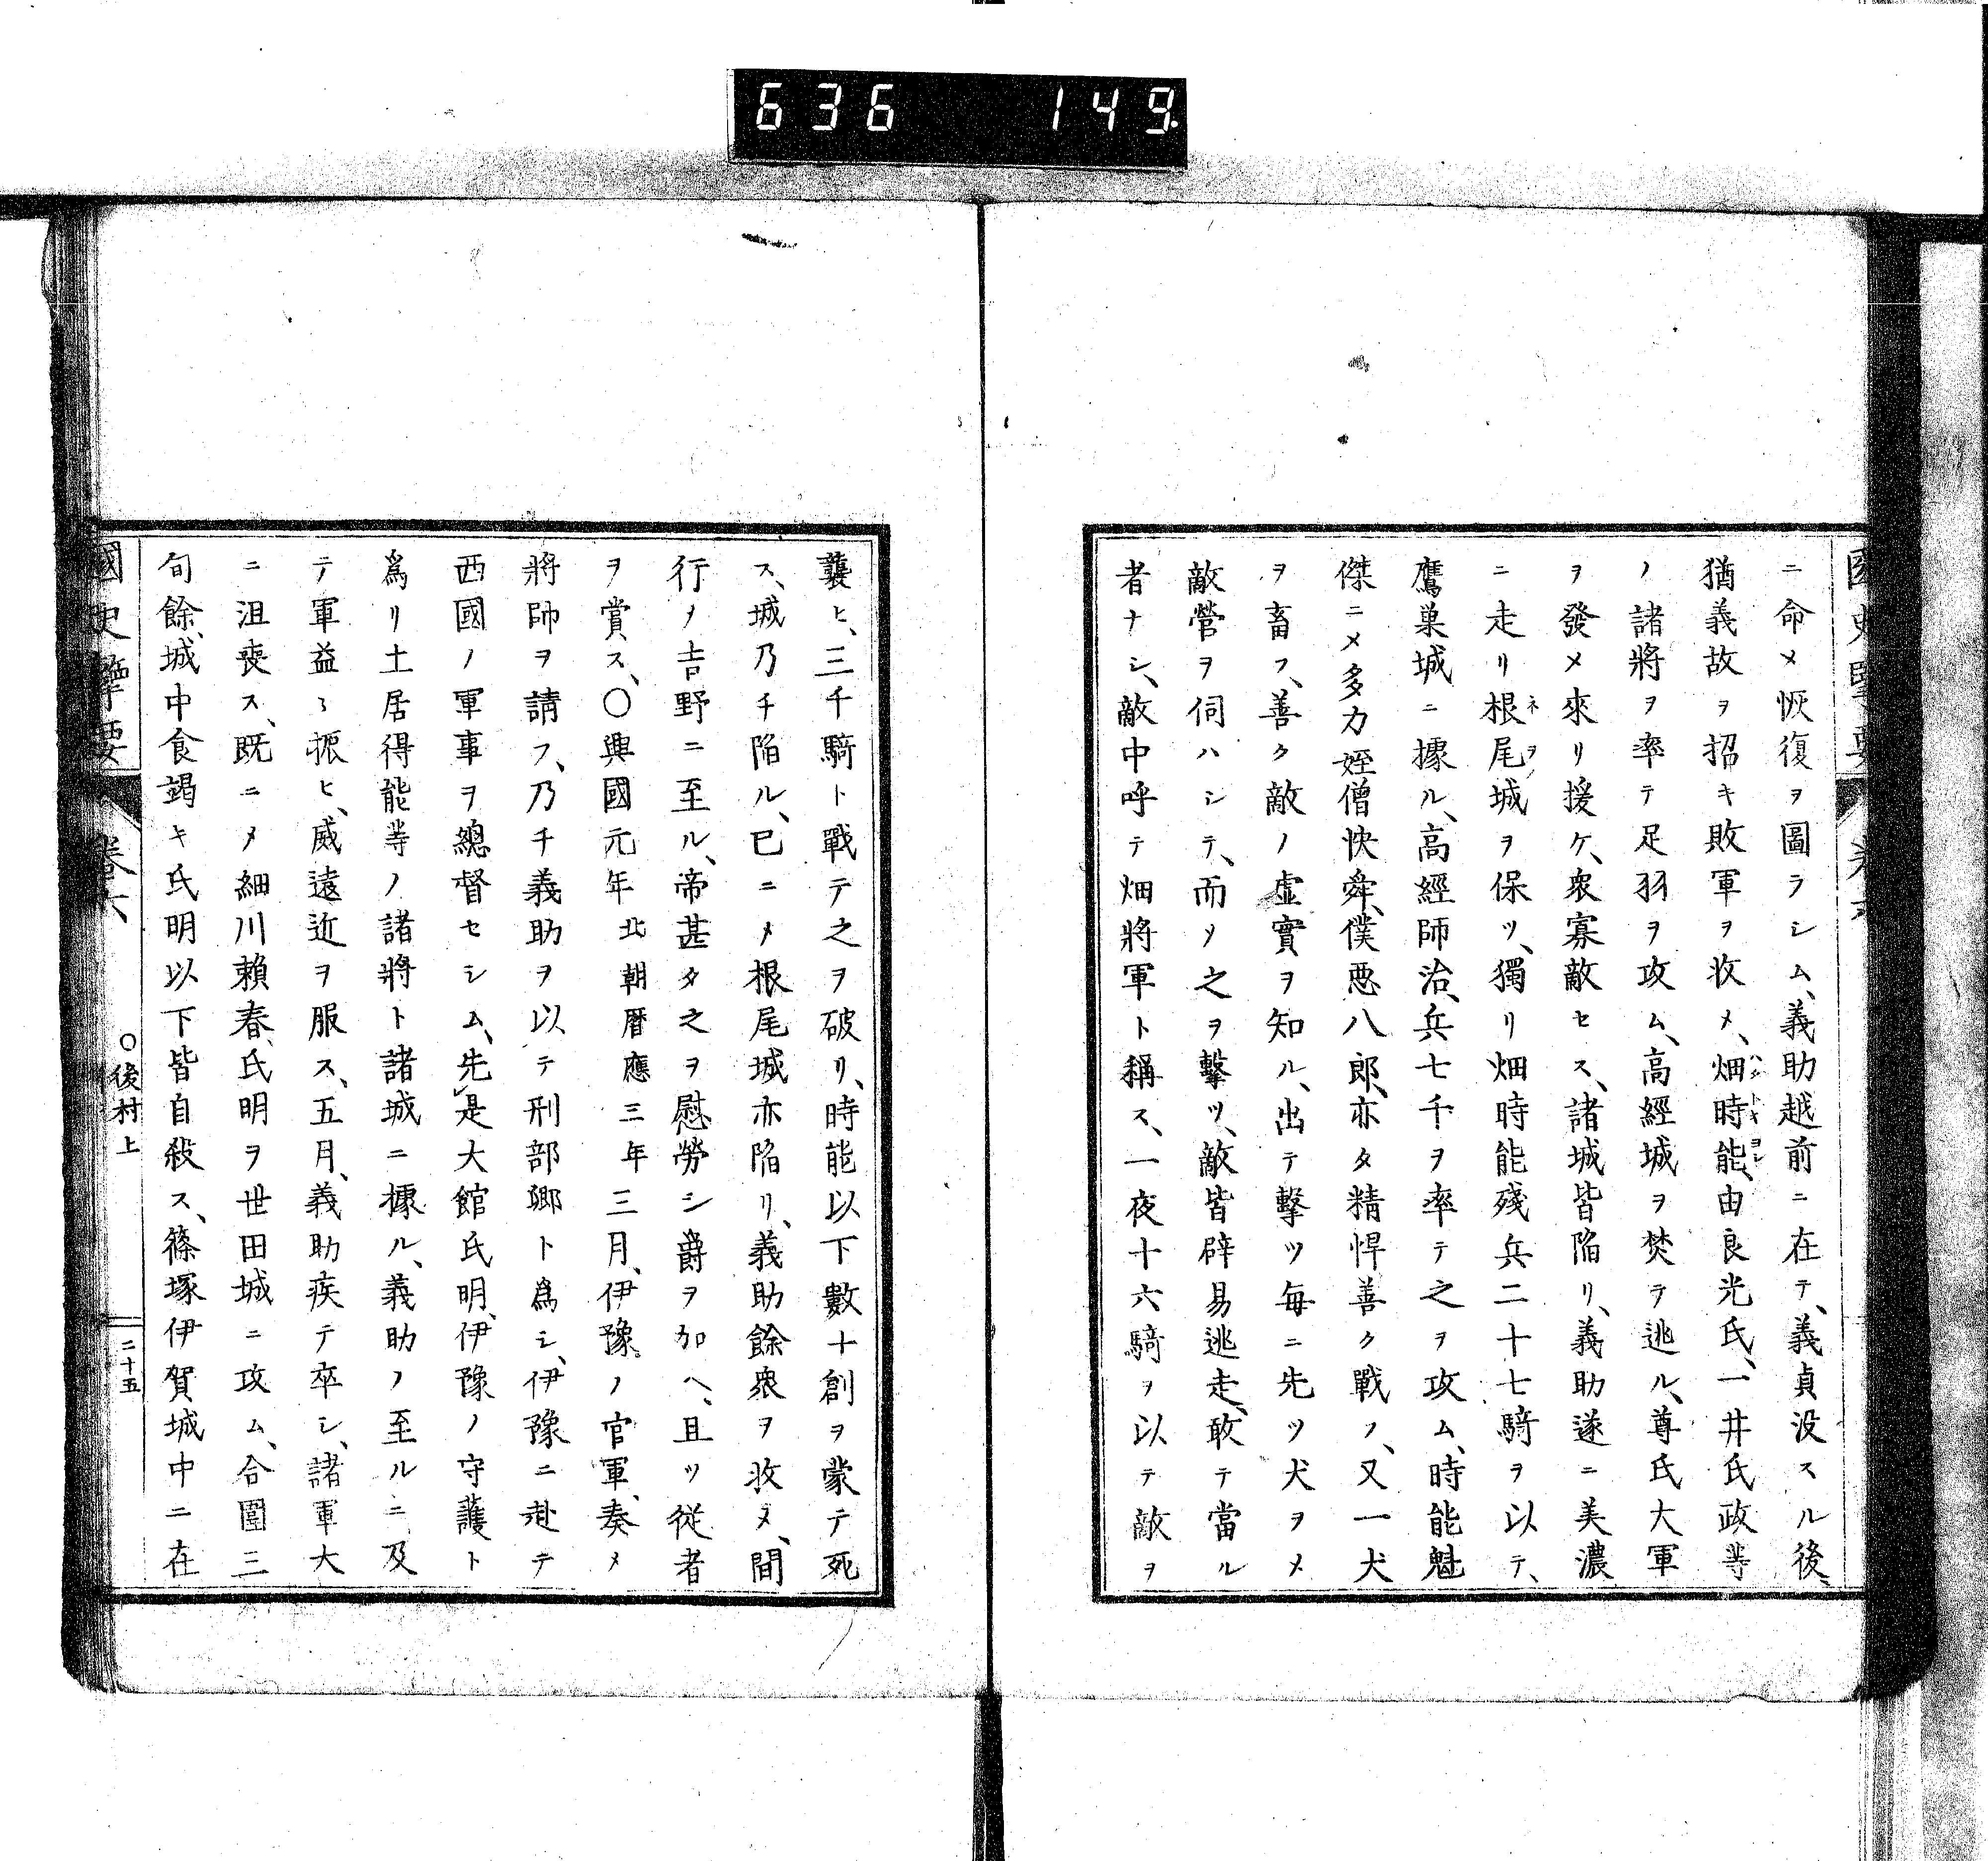 636 149.
ニ命メ恢復ヲ圖ラシム、義助越前ニ在テ、義貞没スル後、
猶義故ヲ招キ敗軍ヲ收メ、畑時能、由良光氏、一井氏政等
ノ諸將ヲ率テ足羽ヲ攻ム、高經城ヲ焚テ逃ル、尊氏大軍
ヲ發メ來リ援ケ、衆寡敵セス、諸城皆陥リ、義助遂ニ美濃
ニ走リ根尾城ヲ保ツ、獨リ畑時能殘兵二十七騎ヲ以テ、
鷹巣城ニ據ル、高經師治、兵七千ヲ率テ之ヲ攻ム、時能魁
傑ニメ多力姪僧快舜、僕惡八郎、亦タ精悍善ク戰フ、又一犬
ヲ畜フ、善ク敵ノ虚實ヲ知ル、出テ擊ツ毎ニ先ツ犬ヲメ
敵營ヲ伺ハシテ、而メ之ヲ擊ツ、敵皆辟易逃走、敢テ當ル
者ナシ、敵中呼テ畑將軍ト稱ス、一夜十六騎ヲ以テ敵ヲ
襲ヒ、三千騎ト戰テ之ヲ破リ、時能以下數十創ヲ蒙テ死
ス、城乃チ陥ル、已ニメ根尾城亦陥リ、義助餘衆ヲ收メ、間
行ノ吉野ニ至ル、帝甚タ之ヲ慰勞シ爵ヲ加ヘ、且ツ從者
ヲ賞ス、〇興國元年北朝暦應三年三月、伊豫ノ官軍、奏メ
將師ヲ請フ、乃チ義助ヲ以テ刑部卿ト爲シ、伊豫ニ赴テ
西國ノ軍事ヲ總督セシム、先是大館氏明、伊豫ノ守護ト
爲リ土居得能等ノ諸將ト諸城ニ據ル、義助ノ至ルニ及
テ軍益〻振ヒ、威遠近ヲ服ス、五月、義助疾テ卒シ、諸軍大
ニ沮喪ス、既ニメ細川賴春、氏明ヲ世田城ニ攻ム、合圍三
旬餘、城中食竭キ氏明以下皆自殺ス、篠塚伊賀、城中ニ在
國史擥要 卷六 〇後村上 二十五